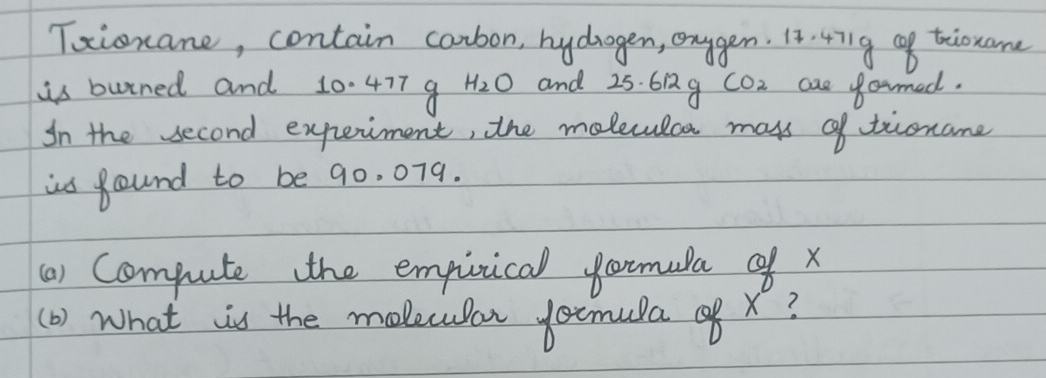 Trioxane, contain carbon, hydrogen, oxygen. 17.471g of trioxane
is burned and 10.477 g H2O and 25.612g CO2 are formed.
In the second experiment, the molecular mass of trioxane
is found to be 90.079.
(a) Compute the empirical formula of X
(b) What is the molecular formula of X ?